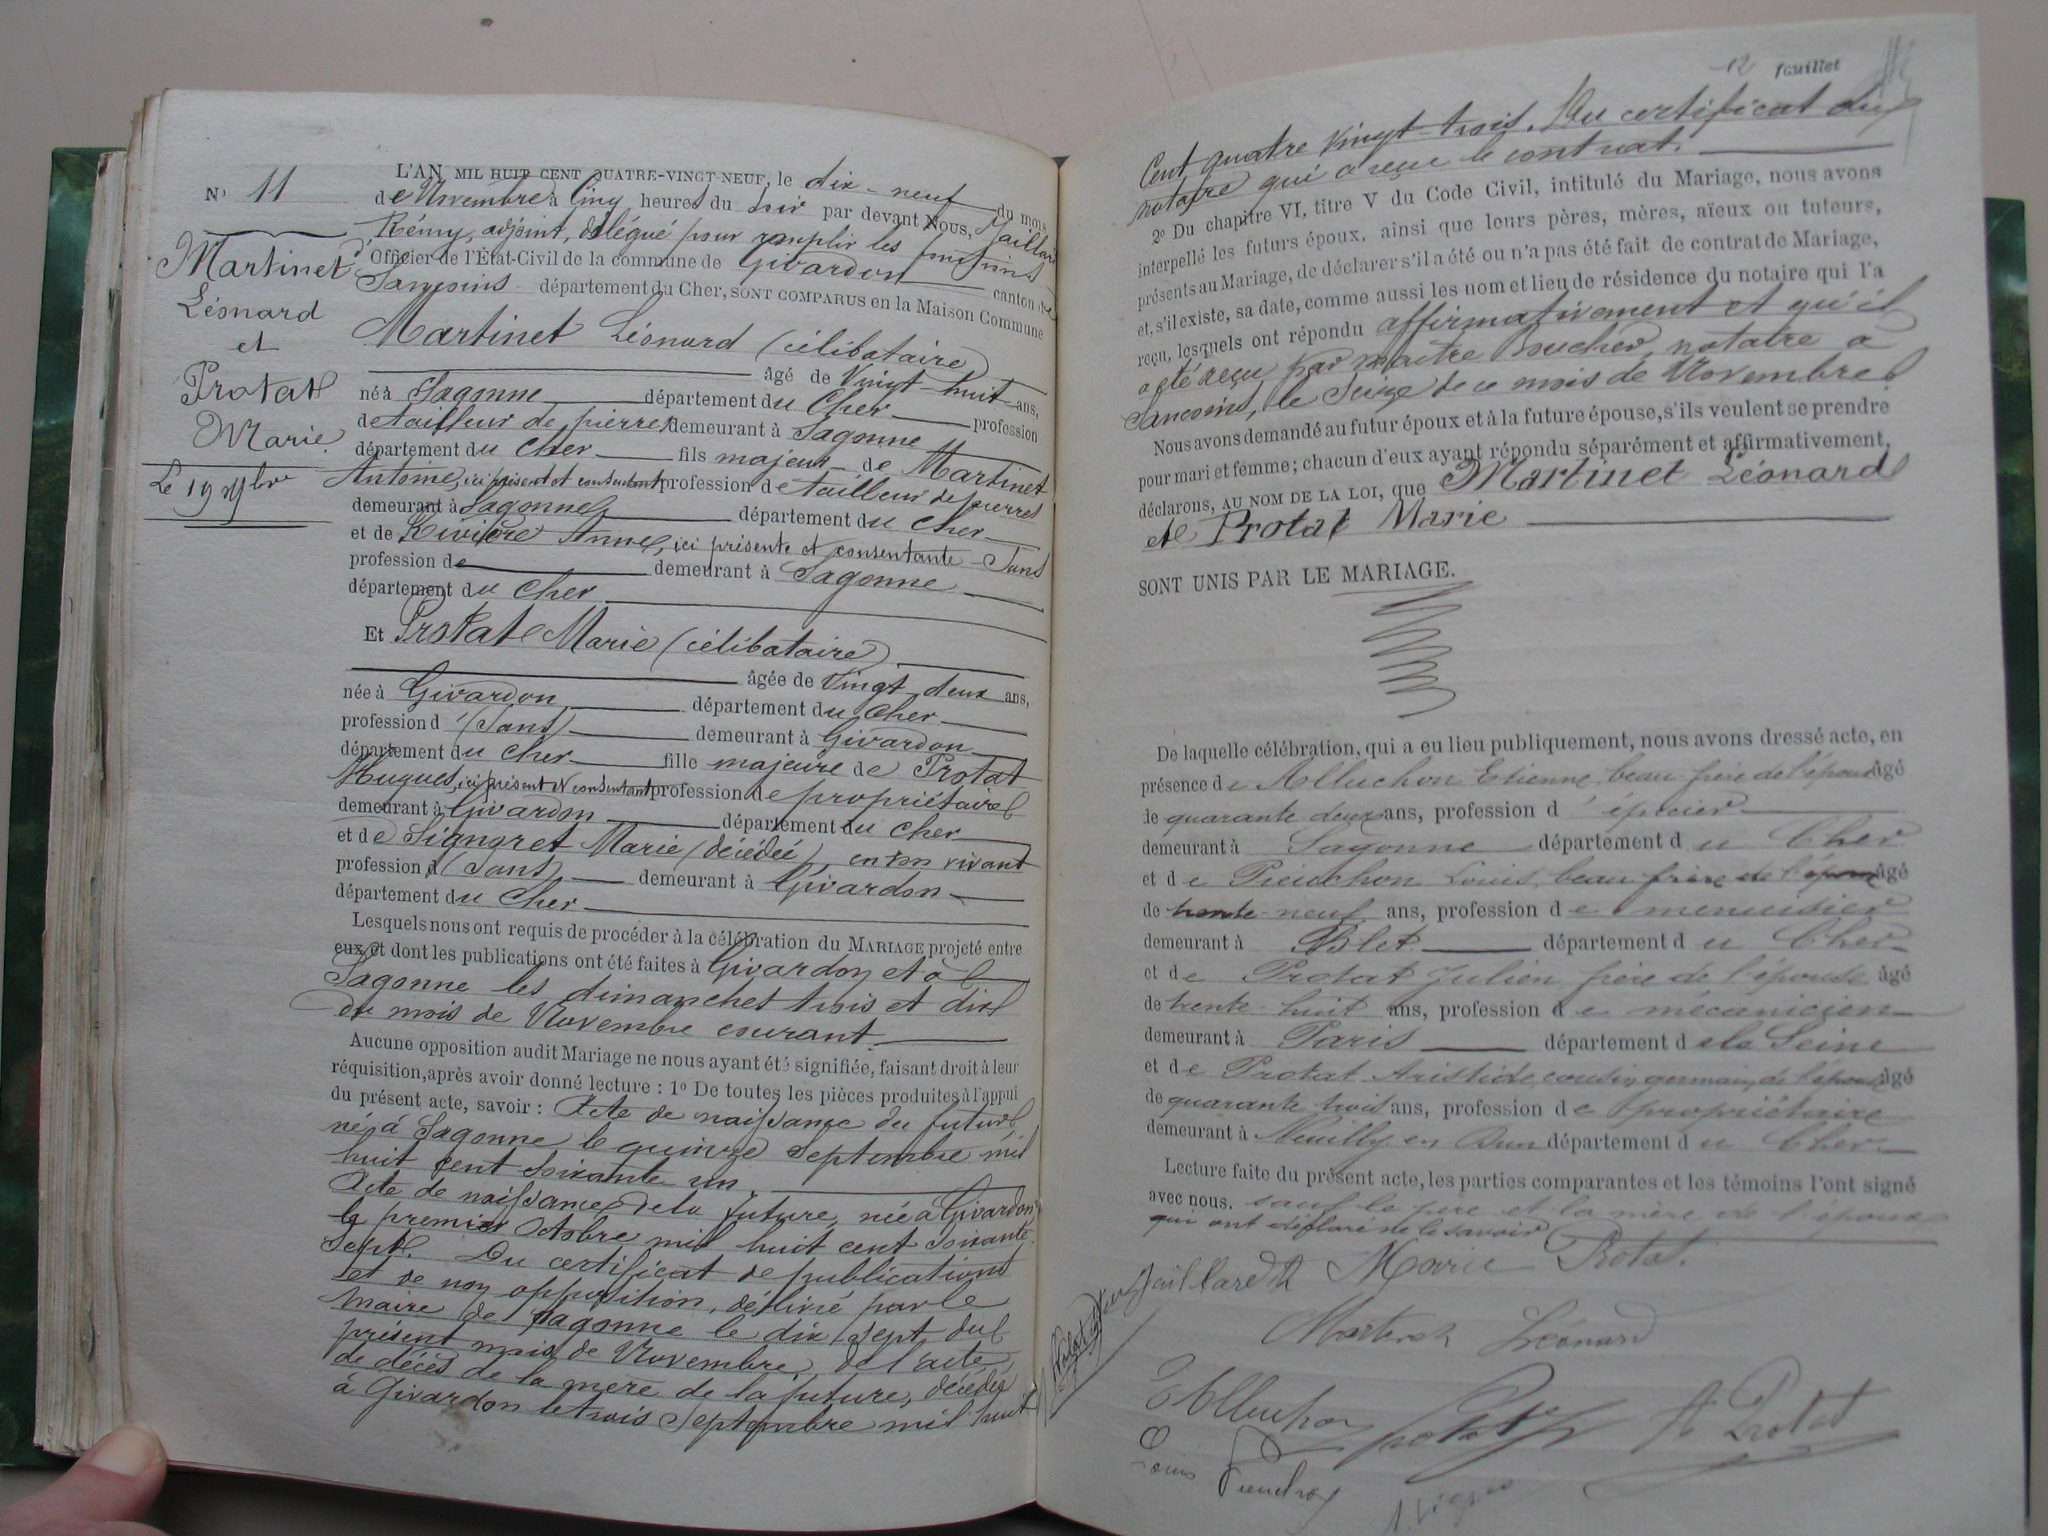 N° 11
Martinet
Léonard
et
Protat
Marie
Le 19 9bre
L'AN MIL HUIT CENT QUATRE-VINGT-NEUF, le dix-neuf du mois
de Novembre à Cinq heures du soir par devant Nous, Jaillard
Rémy, adjoint, délégué pour remplir les fonctions
d'Officier de l'État-Civil de la commune de Givardon canton de
Sancoins département du Cher, SONT COMPARUS en la Maison Commune
Martinet Léonard (célibataire)
âgé de Vingt-huit ans,
né à Sagonne département du Cher profession
de tailleur de pierres demeurant à Sagonne
département du Cher fils majeur de Martinet
Antoine, ici présent et consentant profession de tailleur de pierres
demeurant à Sagonne département du Cher
et de Rivière Anne, ici présente et consentante Sans
profession de demeurant à Sagonne
département du Cher
Et Protat Marie (célibataire)
âgée de Vingt deux ans,
née à Givardon département du Cher
profession d (Sans) demeurant à Givardon
département du Cher fille majeure de Protat
Hugues, ici présent et consentant profession de propriétaire
demeurant à Givardon département du Cher
et de Signoret Marie (décédée), en son vivant
profession d (Sans) demeurant à Givardon
département du Cher
Lesquels nous ont requis de procéder à la célébration du MARIAGE projeté entre
eux et dont les publications ont été faites à Givardon et à
Sagonne les dimanches trois et dix
du mois de Novembre courant.
Aucune opposition audit Mariage ne nous ayant été signifiée, faisant droit à leur
réquisition, après avoir donné lecture : 1° De toutes les pièces produites à l'appui
du présent acte, savoir : Acte de naissance du futur,
né à Sagonne le quinze Septembre mil
huit cent soixante un
Acte de naissance de la future, née à Givardon
le premier Octobre mil huit cent soixante
Sept. Du certificat de publications
et de non opposition, délivré par le
Maire de Sagonne le dix sept du
présent mois de Novembre, de l'acte
de décès de la mère de la future, décédée
à Givardon le trois Septembre mil huit
12 feuillet
Cent quatre vingt-trois. Du certificat du
notaire qui a reçu le contrat.
2° Du chapitre VI, titre V du Code Civil, intitulé du Mariage, nous avons
interpellé les futurs époux, ainsi que leurs pères, mères, aïeux ou tuteurs,
présents au Mariage, de déclarer s'il a été ou n'a pas été fait de contrat de Mariage,
et, s'il existe, sa date, comme aussi les nom et lieu de résidence du notaire qui l'a
reçu, lesquels ont répondu affirmativement et qu'il
a été reçu par maître Boucher, notaire à
Sancoins, le Seize de ce mois de Novembre.
Nous avons demandé au futur époux et à la future épouse, s'ils veulent se prendre
pour mari et femme ; chacun d'eux ayant répondu séparément et affirmativement,
déclarons, AU NOM DE LA LOI, que Martinet Léonard
et Protat Marie
SONT UNIS PAR LE MARIAGE.
De laquelle célébration, qui a eu lieu publiquement, nous avons dressé acte, en
présence de Alluchon Etienne, beau frère de l'époux âgé
de quarante deux ans, profession d'épicier
demeurant à Sagonne département du Cher
et de Pieuchon Louis, beau frère de l'époux âgé
de trente-neuf ans, profession de menuisier
demeurant à Blet département du Cher
et de Protat Julien frère de l'épouse âgé
de trente-huit ans, profession de mécanicien
demeurant à Paris département de la Seine
et de Protat Aristide, cousin germain de l'épouse âgé
de quarante trois ans, profession de propriétaire
demeurant à Neuilly en Dun département du Cher
Lecture faite du présent acte, les parties comparantes et les témoins l'ont signé
avec nous. sauf le père et la mère de l'époux
qui ont déclaré ne le savoir
Jaillard R Marie Protat.
Martinet Léonard
E Alluchon Protat A Protat
Louis